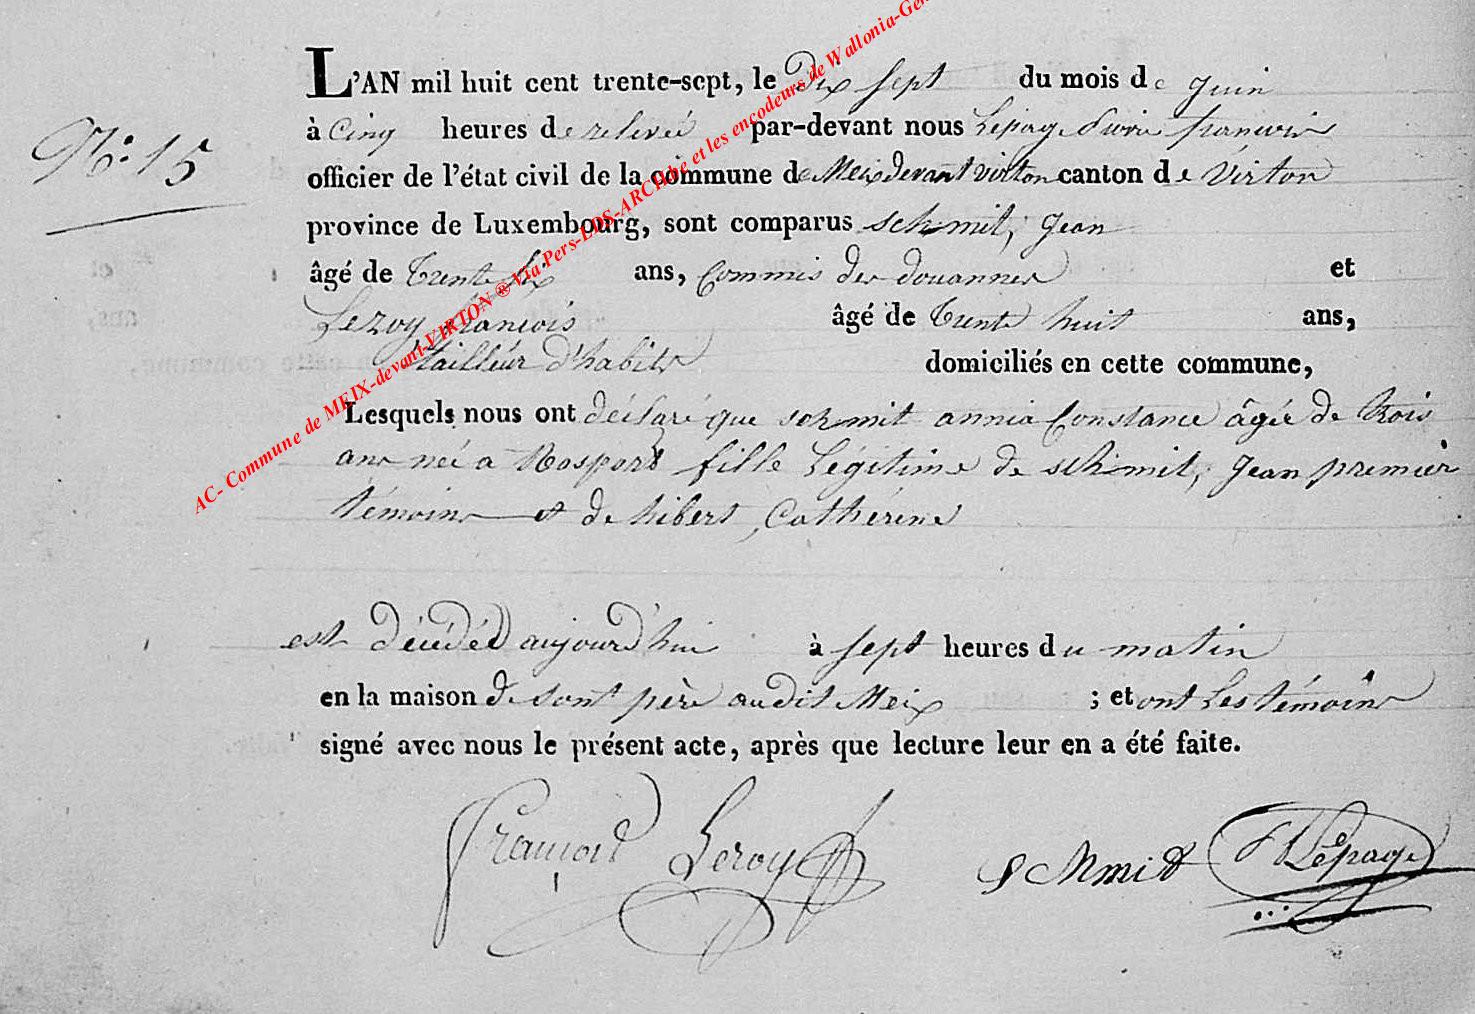 N°. 15
L'AN mil huit cent trente-sept, le dix sept du mois de juin
à cinq heures de relevée par-devant nous Lepage Pierre francois
officier de l'état civil de la commune de Meix devant virton canton de Virton
province de Luxembourg, sont comparus schmit, Jean
âgé de trente six ans, commis des douannes et
Leroy francois âgé de trente huit ans,
tailleur d'habits domiciliés en cette commune,
Lesquels nous ont déclaré que schmit annia Constance âgée de trois
ans née a Rosport fille Légitime de schmit, Jean premier
témoins et de hibert, Catherine
est décédée aujourd'hui à sept heures du matin
en la maison de sont père audit Meix ; et ont Les témoins
signé avec nous le présent acte, après que lecture leur en a été faite.
François Leroy schmit Lepage
AC- Commune de MEIX-devant-VIRTON ® Via Pers-LDS-ARCH.be et les encodeurs de Wallonia-Gen